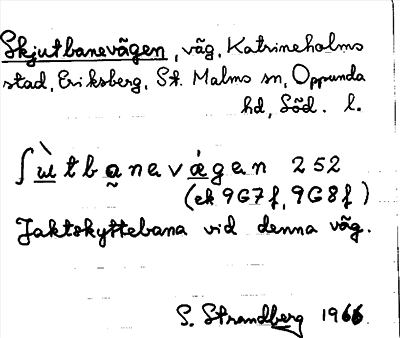 Skjutbanevägen, väg, Katrineholms
stad, Eriksberg, St. Malms sn, Oppunda
hd, Söd. l.
ʃùtbanevágen 252
(ek 9G7f, 9G8f)
Jaktskyttebana vid denna väg.
S. Strandberg 1966.